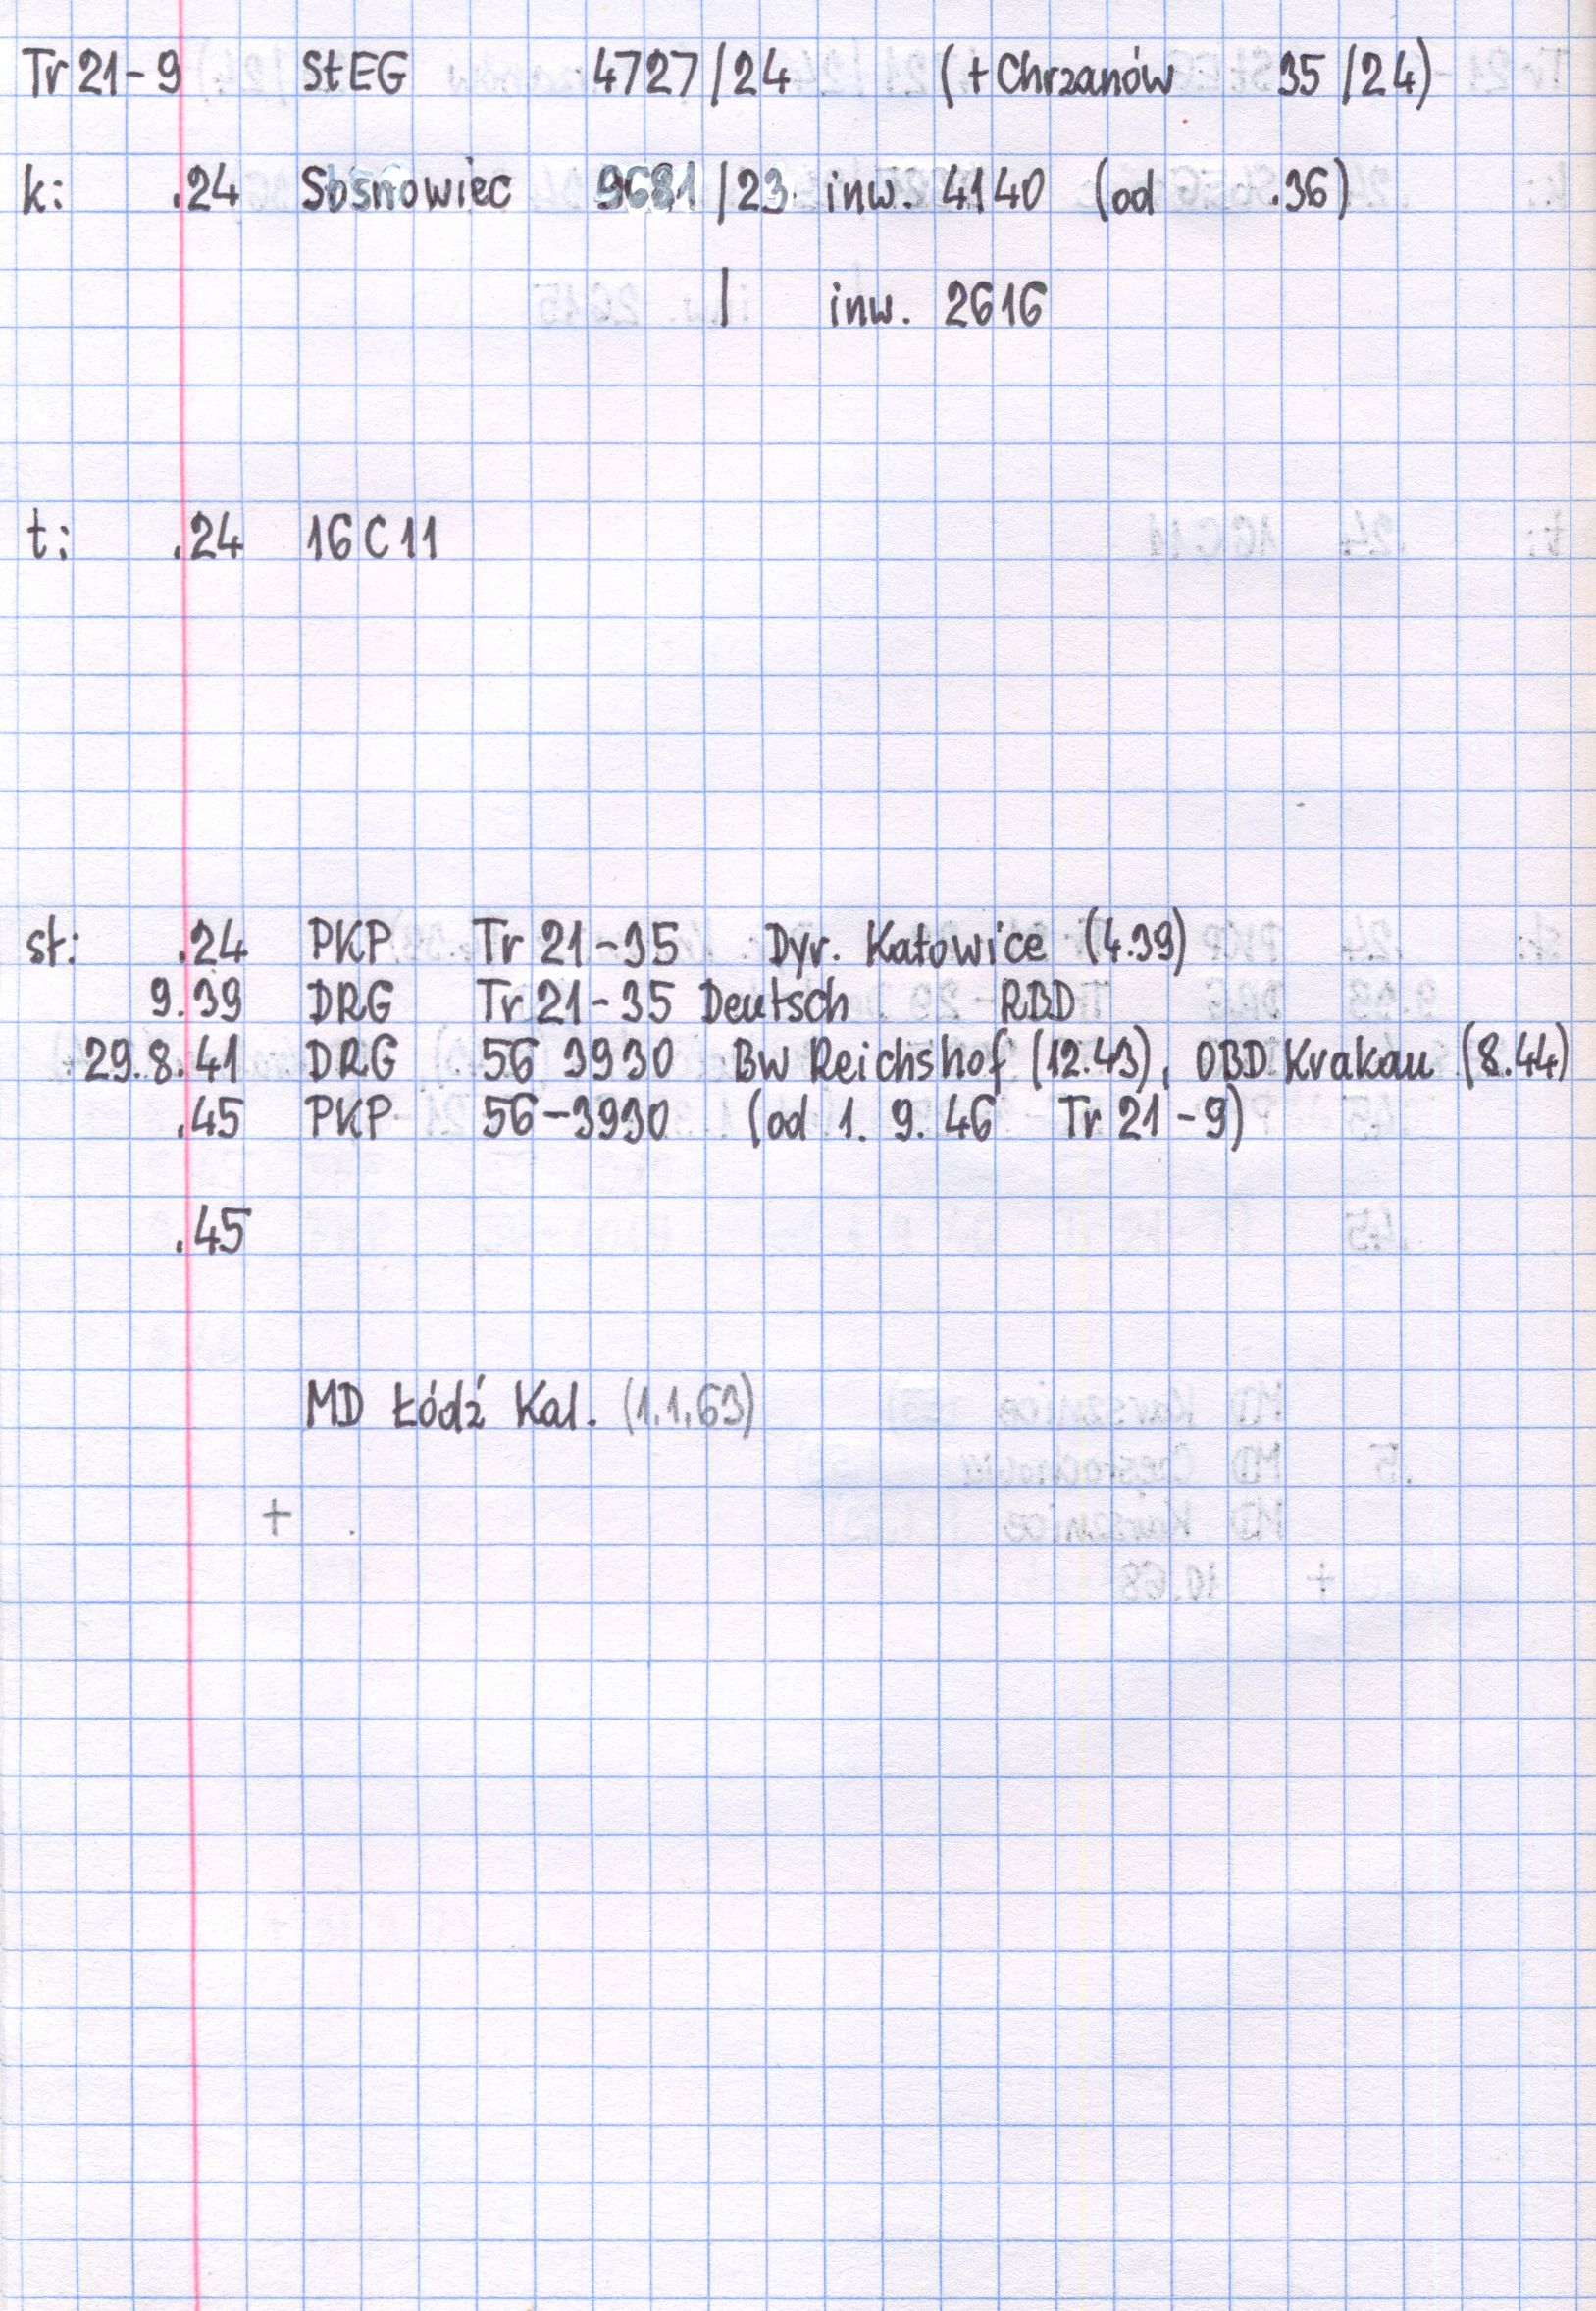 Tr 21-9 StEG 4727/24 (+Chrzanów 35/24)
k: .24 Sosnowiec 9681/23 inw. 4140 (od .36)
/ inw. 2616
t: .24 16C11
st: .24 PKP Tr 21-35 Dyr. Katowice (4.39)
9.39 DRG Tr 21-35 Deutsch RBD
29.8.41 DRG 56 3930 Bw Reichshof (12.43), OBD Krakau (8.44)
.45 PKP 56-3930 (od 1. 9. 46 Tr 21-9)
.45
MD Łódź Kal. (1.1.63)
+ .